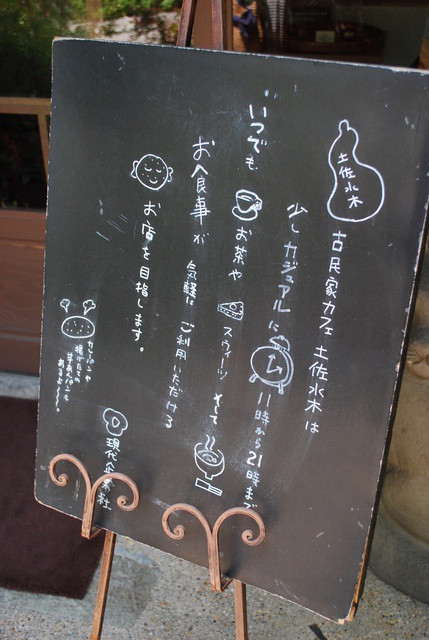 土佐水木
古民家カフェ 土佐水木は
少しカジュアルに 11時から21時まで
いつでも お茶や スウィーツ そして
お食事が 気軽に ご利用いただける
お店を目指します。
カレーパンや
あるよ〜。
現代企業社